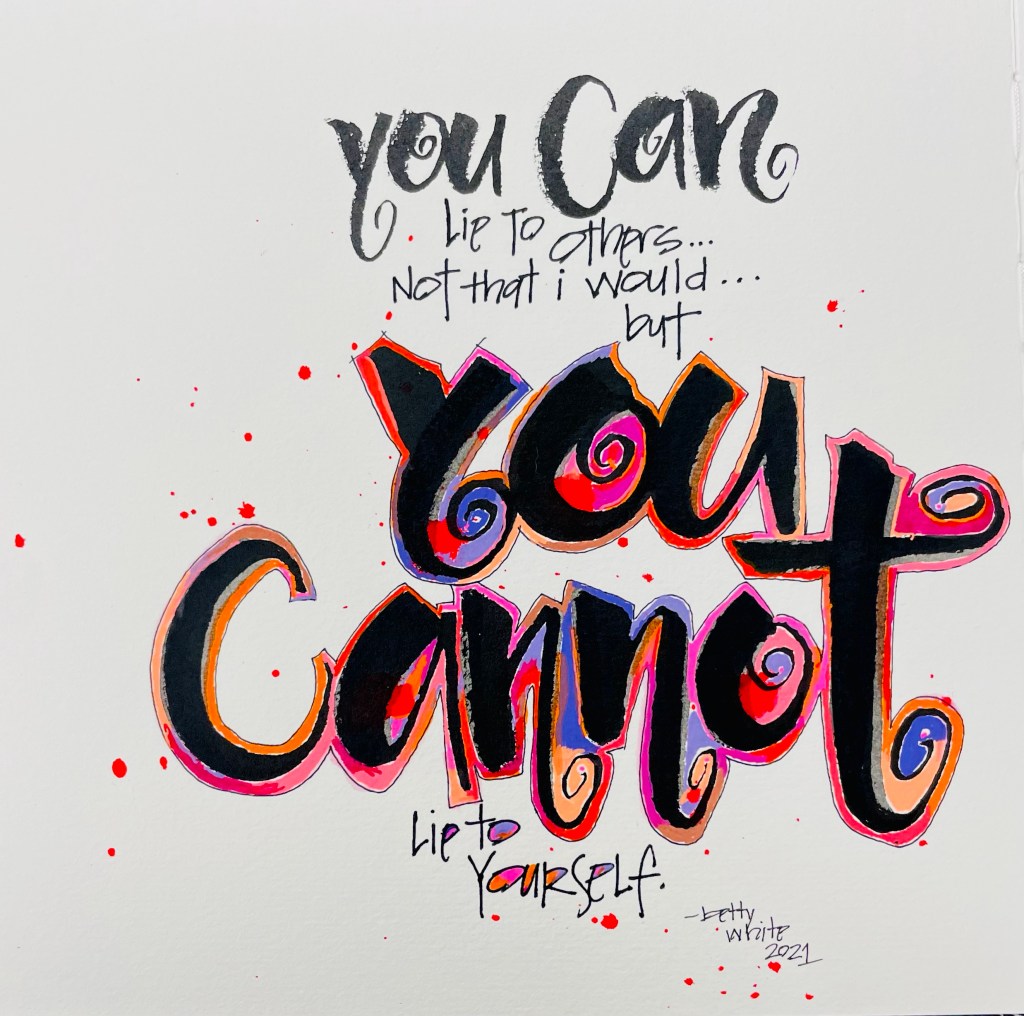 you Can
Lie To others...
Not that i would...
but
you
Cannot
Lie to
YourSELF.
-betty
white
2021